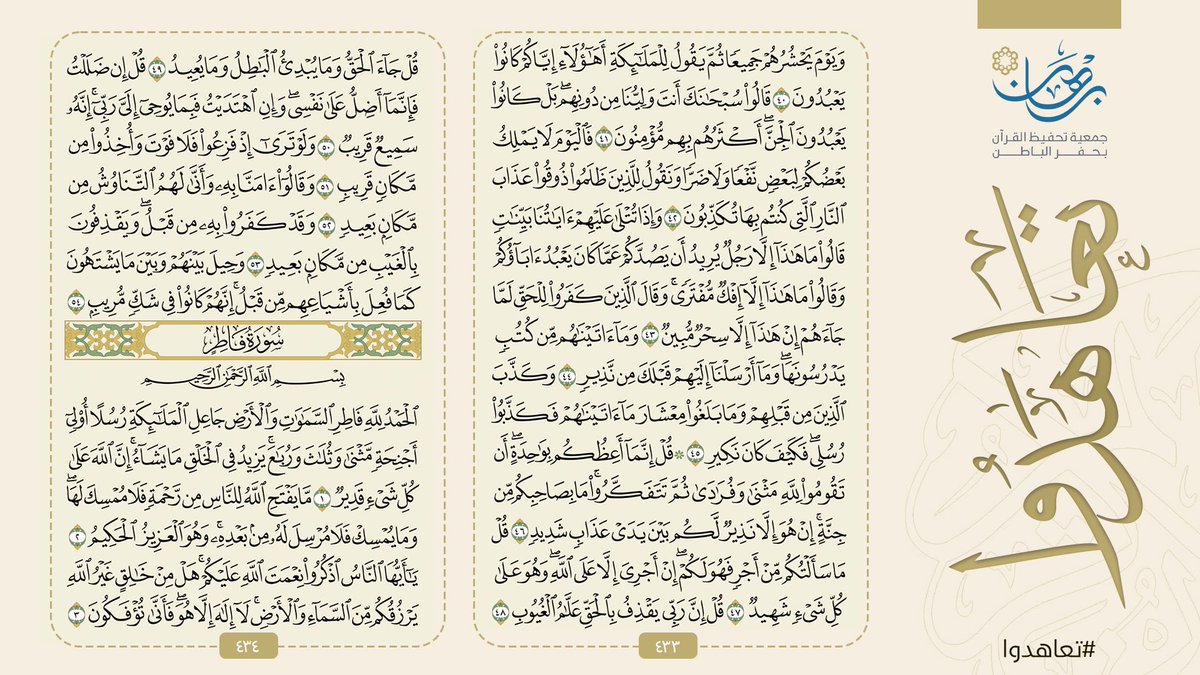 برهان
جمعية تحفيظ القرآن
بحفر الباطن
تعاهدوا
#تعاهدوا
وَيَوْمَ يَحْشُرُهُمْ جَمِيعًا ثُمَّ يَقُولُ لِلْمَلَٰٓئِكَةِ أَهَٰٓؤُلَآءِ إِيَّاكُمْ كَانُوا۟
يَعْبُدُونَ ٤٠ قَالُوا۟ سُبْحَٰنَكَ أَنتَ وَلِيُّنَا مِن دُونِهِم ۖ بَلْ كَانُوا۟
يَعْبُدُونَ ٱلْجِنَّ ۖ أَكْثَرُهُم بِهِم مُّؤْمِنُونَ ٤١ فَٱلْيَوْمَ لَا يَمْلِكُ
بَعْضُكُمْ لِبَعْضٍ نَّفْعًا وَلَا ضَرًّا وَنَقُولُ لِلَّذِينَ ظَلَمُوا۟ ذُوقُوا۟ عَذَابَ
ٱلنَّارِ ٱلَّتِى كُنتُم بِهَا تُكَذِّبُونَ ٤٢ وَإِذَا تُتْلَىٰ عَلَيْهِمْ ءَايَٰتُنَا بَيِّنَٰتٍ
قَالُوا۟ مَا هَٰذَآ إِلَّا رَجُلٌ يُرِيدُ أَن يَصُدَّكُمْ عَمَّا كَانَ يَعْبُدُ ءَابَآؤُكُمْ
وَقَالُوا۟ مَا هَٰذَآ إِلَّآ إِفْكٌ مُّفْتَرًى ۚ وَقَالَ ٱلَّذِينَ كَفَرُوا۟ لِلْحَقِّ لَمَّا
جَآءَهُمْ إِنْ هَٰذَآ إِلَّا سِحْرٌ مُّبِينٌ ٤٣ وَمَآ ءَاتَيْنَٰهُم مِّن كُتُبٍ
يَدْرُسُونَهَا ۖ وَمَآ أَرْسَلْنَآ إِلَيْهِمْ قَبْلَكَ مِن نَّذِيرٍ ٤٤ وَكَذَّبَ
ٱلَّذِينَ مِن قَبْلِهِمْ وَمَا بَلَغُوا۟ مِعْشَارَ مَآ ءَاتَيْنَٰهُمْ فَكَذَّبُوا۟
رُسُلِى ۖ فَكَيْفَ كَانَ نَكِيرِ ٤٥ ۞ قُلْ إِنَّمَآ أَعِظُكُم بِوَٰحِدَةٍ ۖ أَن
تَقُومُوا۟ لِلَّهِ مَثْنَىٰ وَفُرَٰدَىٰ ثُمَّ تَتَفَكَّرُوا۟ ۚ مَا بِصَاحِبِكُم مِّن
جِنَّةٍ ۚ إِنْ هُوَ إِلَّا نَذِيرٌ لَّكُم بَيْنَ يَدَىْ عَذَابٍ شَدِيدٍ ٤٦ قُلْ
مَا سَأَلْتُكُم مِّنْ أَجْرٍ فَهُوَ لَكُمْ ۖ إِنْ أَجْرِىَ إِلَّا عَلَى ٱللَّهِ ۖ وَهُوَ عَلَىٰ
كُلِّ شَىْءٍ شَهِيدٌ ٤٧ قُلْ إِنَّ رَبِّى يَقْذِفُ بِٱلْحَقِّ عَلَّٰمُ ٱلْغُيُوبِ ٤٨
٤٣٣
قُلْ جَآءَ ٱلْحَقُّ وَمَا يُبْدِئُ ٱلْبَٰطِلُ وَمَا يُعِيدُ ٤٩ قُلْ إِن ضَلَلْتُ
فَإِنَّمَآ أَضِلُّ عَلَىٰ نَفْسِى ۖ وَإِنِ ٱهْتَدَيْتُ فَبِمَا يُوحِىٓ إِلَىَّ رَبِّىٓ ۚ إِنَّهُۥ
سَمِيعٌ قَرِيبٌ ٥٠ وَلَوْ تَرَىٰٓ إِذْ فَزِعُوا۟ فَلَا فَوْتَ وَأُخِذُوا۟ مِن
مَّكَانٍ قَرِيبٍ ٥١ وَقَالُوٓا۟ ءَامَنَّا بِهِۦ وَأَنَّىٰ لَهُمُ ٱلتَّنَاوُشُ مِن
مَّكَانٍۭ بَعِيدٍ ٥٢ وَقَدْ كَفَرُوا۟ بِهِۦ مِن قَبْلُ ۖ وَيَقْذِفُونَ
بِٱلْغَيْبِ مِن مَّكَانٍۭ بَعِيدٍ ٥٣ وَحِيلَ بَيْنَهُمْ وَبَيْنَ مَا يَشْتَهُونَ
كَمَا فُعِلَ بِأَشْيَاعِهِم مِّن قَبْلُ ۚ إِنَّهُمْ كَانُوا۟ فِى شَكٍّ مُّرِيبٍۭ ٥٤
سُورَةُ فَاطِرٍ
بِسْمِ ٱللَّهِ ٱلرَّحْمَٰنِ ٱلرَّحِيمِ
ٱلْحَمْدُ لِلَّهِ فَاطِرِ ٱلسَّمَٰوَٰتِ وَٱلْأَرْضِ جَاعِلِ ٱلْمَلَٰٓئِكَةِ رُسُلًا أُو۟لِىٓ
أَجْنِحَةٍ مَّثْنَىٰ وَثُلَٰثَ وَرُبَٰعَ ۚ يَزِيدُ فِى ٱلْخَلْقِ مَا يَشَآءُ ۚ إِنَّ ٱللَّهَ عَلَىٰ
كُلِّ شَىْءٍ قَدِيرٌ ١ مَّا يَفْتَحِ ٱللَّهُ لِلنَّاسِ مِن رَّحْمَةٍ فَلَا مُمْسِكَ لَهَا ۖ
وَمَا يُمْسِكْ فَلَا مُرْسِلَ لَهُۥ مِنۢ بَعْدِهِۦ ۚ وَهُوَ ٱلْعَزِيزُ ٱلْحَكِيمُ ٢
يَٰٓأَيُّهَا ٱلنَّاسُ ٱذْكُرُوا۟ نِعْمَتَ ٱللَّهِ عَلَيْكُمْ ۚ هَلْ مِنْ خَٰلِقٍ غَيْرُ ٱللَّهِ
يَرْزُقُكُم مِّنَ ٱلسَّمَآءِ وَٱلْأَرْضِ ۚ لَآ إِلَٰهَ إِلَّا هُوَ ۖ فَأَنَّىٰ تُؤْفَكُونَ ٣
٤٣٤